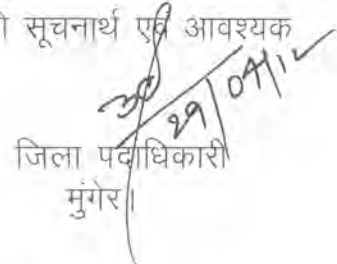 सूचनार्थ एवं आवश्यक
29/04/12
जिला पदाधिकारी
मुंगेर।